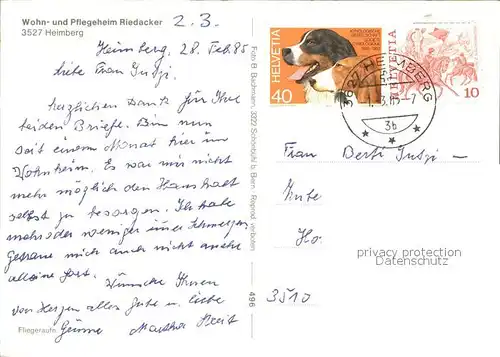 Wohn- und Pflegeheim Riedacker
3527 Heimberg
2.3.
Heimberg, 28. Feb. 85
Liebe Frau
herzlichen Dank für Ihre
beiden Briefe. Bin nun
seit einem Monat hier im
Wohnheim. Es war mir nicht
mehr möglich den Haushalt
selbst zu besorgen. Ich habe
mehr oder weniger immer Schmerzen,
getraue mich auch nicht mehr
alleine fort. Wünsche Ihnen
von Herzen alles Gute u. liebe
Fliegeraufn.
Grüsse Martha
Foto B. Bachmann, 3322 Schönbühl b. Bern - Reprod. verboten
496
HELVETIA
40
HELVETIA
10
3627 HEIMBERG
-1.3.85-7
3b
Frau Berti
3510
privacy protection
Datenschutz